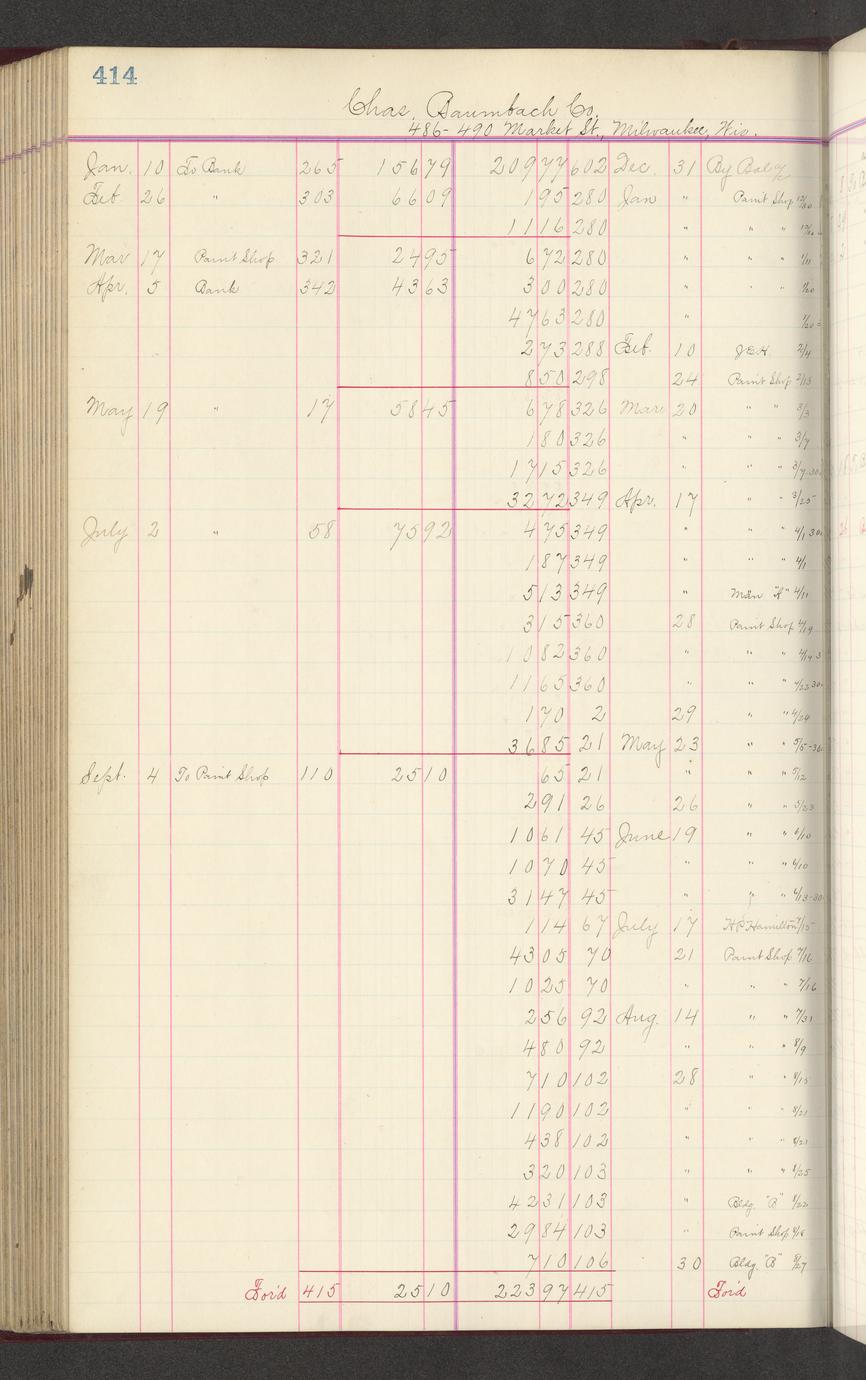 414
Chas. Baumbach Co.
486-490 Market St., Milwaukee, Wis.
Jan. 10 To Bank 265 156 79 209 77 602 Dec. 31 By Bal
Feb. 26 " 303 66 09 1 95 280 Jan " Paint Shop 12/30
11 16 280 " " "
Mar 17 Paint Shop 321 24 95 6 72 280 " " " 1/11
Apr. 5 Bank 342 43 63 3 00 280 " " " 1/20
47 63 280 " 1/20
2 73 288 Feb. 10 2/4
8 50 298 24 Paint Shop 2/13
May 19 " 17 58 45 6 78 326 Mar 20 " " 3/3
1 80 326 " " " 3/7
17 15 326 " " " 3/7-30
32 72 349 Apr. 17 " " 3/25
July 2 " 58 75 92 4 75 349 " " " 4/1 30
1 87 349 " " " 4/1
5 13 349 " 4/11
3 15 360 28 Paint Shop 4/19
10 82 360 " " " 4/14
11 65 360 " " " 4/22 30
1 70 2 29 " " 4/24
36 85 21 May 23 " " 5/5-30
Sept. 4 To Paint Shop 110 25 10 65 21 " " " 5/12
2 91 26 26 " " 5/23
10 61 45 June 19 " " 6/10
10 70 45 " " " 6/10
31 47 45 " " " 6/13-30
1 14 67 July 17 H P Hamilton 7/15
43 05 70 21 Paint Shop 7/16
10 25 70 " " " 7/16
2 56 92 Aug. 14 " " 7/31
4 80 92 " " " 8/9
7 10 102 28 " " 8/15
11 90 102 " " " 8/21
4 38 102 " " " 8/21
3 20 103 " " " 8/25
42 31 103 " Bldg. "B" 8/22
29 84 103 " Paint Shop 8/18
7 10 106 30 Bldg. "B" 8/27
For'd 415 25 10 223 97 415 For'd